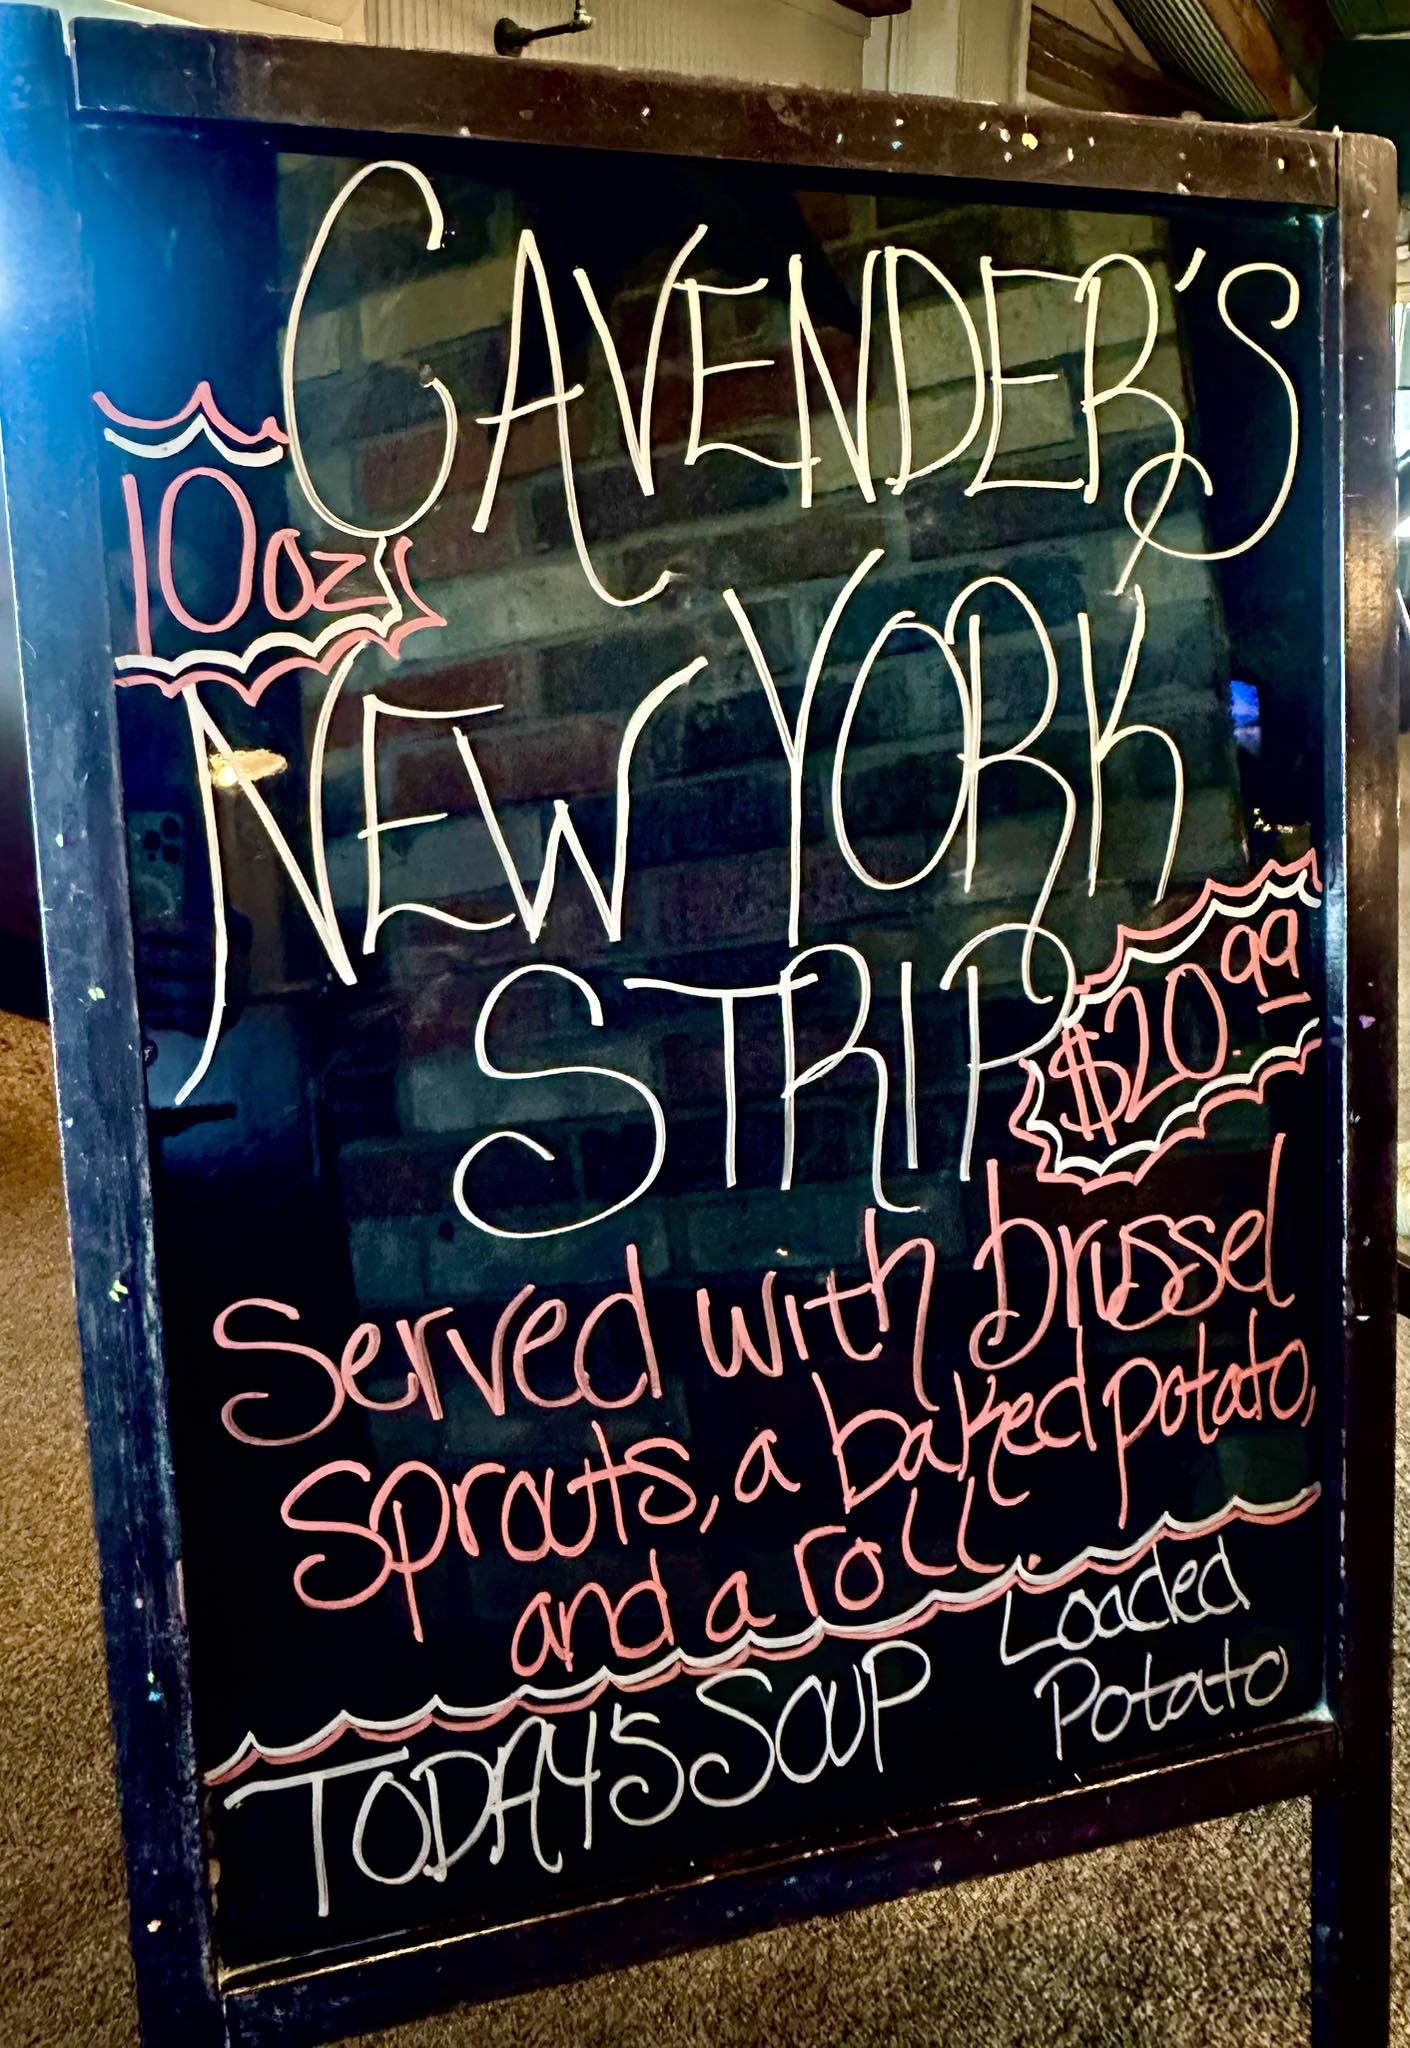 CAVENDER'S
10oz
NEW YORK
STRIP
$20.99
Served with brussel
sprouts, a baked potato,
and a roll.
TODAY'S SOUP Loaded
Potato